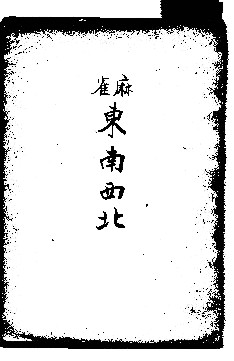 麻雀
東南西北